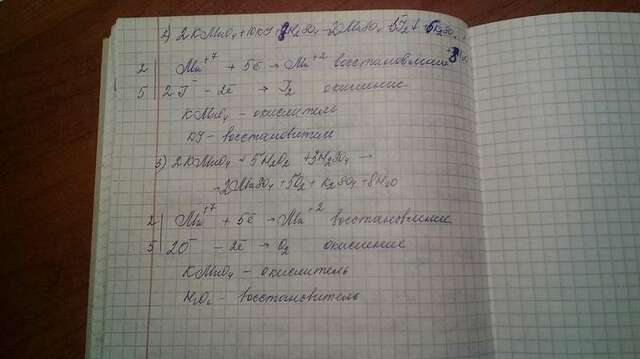 2) 2KMnO₄ + 10KJ + 8H₂SO₄ → 2MnSO₄ + 5J₂↓ + 6K₂SO₄ +
+ 8H₂O
2 | Mn⁺⁷ + 5ē → Mn⁺² восстановление
5 | 2J⁻ - 2ē → J₂ окисление
KMnO₄ - окислитель
KJ - восстановитель
3) 2KMnO₄ + 5H₂O₂ + 3H₂SO₄ →
→ 2MnSO₄ + 5O₂ + K₂SO₄ + 8H₂O
2 | Mn⁺⁷ + 5ē → Mn⁺² восстановление
5 | 2O⁻ - 2ē → O₂ окисление
KMnO₄ - окислитель
H₂O₂ - восстановитель